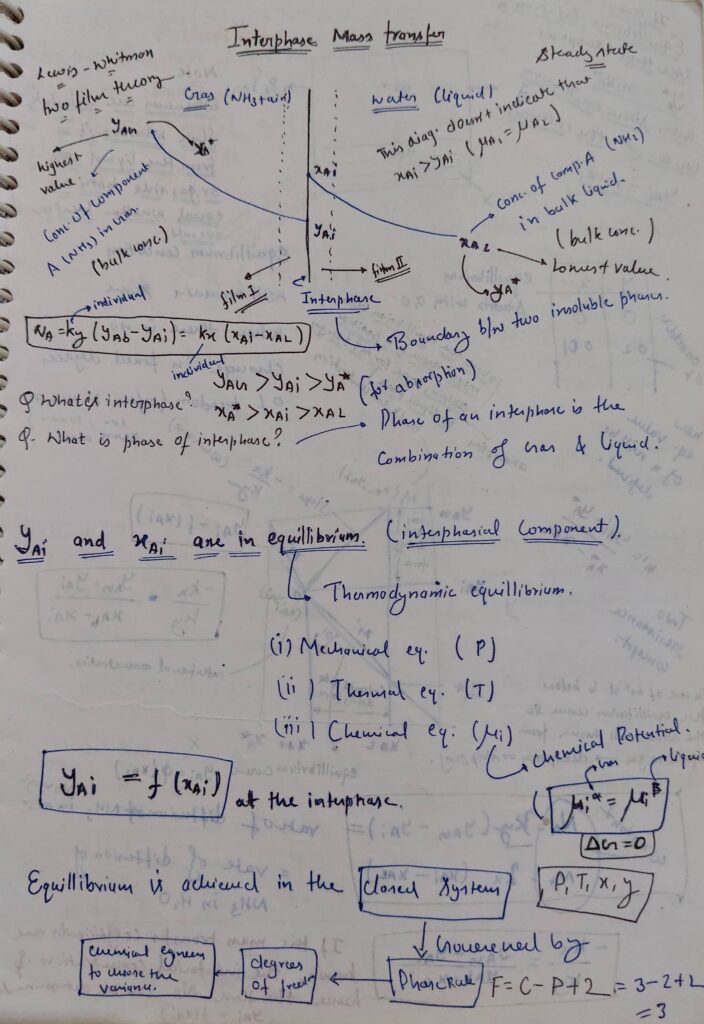 Interphase Mass transfer
Lewis-Whitman
two film theory
Steady state
Gas (NH3+air)
water (liquid)
This diag. doesn't indicate that
xAi > yAi (μA1 = μA2)
yAG
highest
value
Conc. of component
A (NH3) in Gas.
(bulk conc.)
xAi
yAi
Conc. of comp. A (NH3)
in bulk liquid.
(bulk conc.)
xAL
Lowest value
yA*
film I
film II
Interphase
Boundary b/w two insoluble phases.
individual
NA = ky (yAb - yAi) = kx (xAi - xAL)
individual
yAG > yAi > yA* (for absorption)
xA* > xAi > xAL
Q What is interphase?
Q- What is phase of interphase?
Phase of an interphase is the
Combination of Gas & liquid.
yAi and xAi are in equilibrium. (interphasial component).
Thermodynamic equillibrium.
(i) Mechanical eq. (P)
(ii) Thermal eq. (T)
(iii) Chemical eq. (μi)
Chemical Potential.
yAi = f (xAi) at the interphase.
Gas
liquid
(μiα = μiβ
ΔG=0
Equillibrium is achieved in the closed system
P, T, x, y
Governed by
Phase Rule F = C - P + 2 = 3 - 2 + 2
= 3
degrees
of freedom
chemical engineer
to choose the
variance.